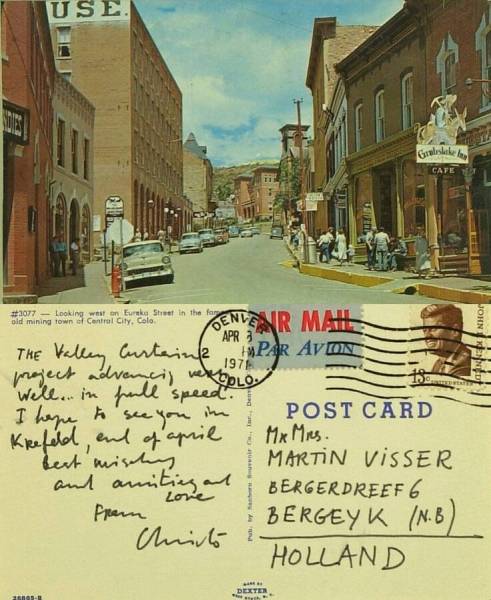 USE.
DIES
Grubstake Inn
CAFE
#3077 — Looking west on Eureka Street in the fam
old mining town of Central City, Colo.
DENVER
APR
2 PM
1971
COLO.
AIR MAIL
PAR AVION
JOHN
KENNEDY
13c
UNITED STATES
THE Valley Curtain
project advancing very
well.. in full speed.
I hope to see you in
Krefeld, end of april
best wishes
and
Love
From
Christo
Pub. by Sanborn Souvenir Co., Inc., Denver
POST CARD
Mr Mrs.
MARTIN VISSER
BERGERDREEF 6
BERGEYK (N.B)
HOLLAND
MADE BY
DEXTER
WEST NYACK, N. Y.
26865-B